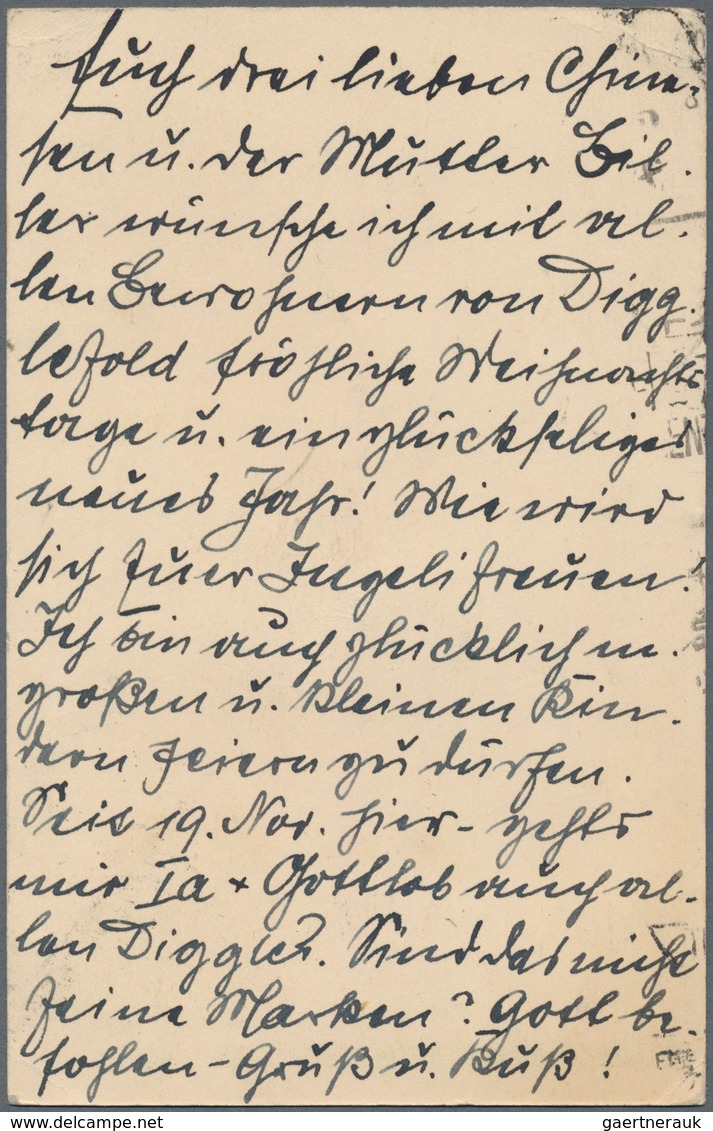 Euch drei lieben Chine-
sen u. der Mutter Bil-
ler wünsche ich mit al-
len Bewohnern von Digg-
lefold fröhliche Weihnachts
tage u. ein glückseliges
neues Jahr! Wie wird
sich Euer Ingeli freuen!
Ich bin auch glücklich m.
großen u. kleinen Kin-
dern feiern zu dürfen.
Seit 19. Nov. hier - gehts
mir Ia + Gottlob auch al-
len Diggler. Sind das nicht
feine Marken? Gott be-
fohlen - Gruß u. Kuß!
www.delcampe.net
gaertnerauk